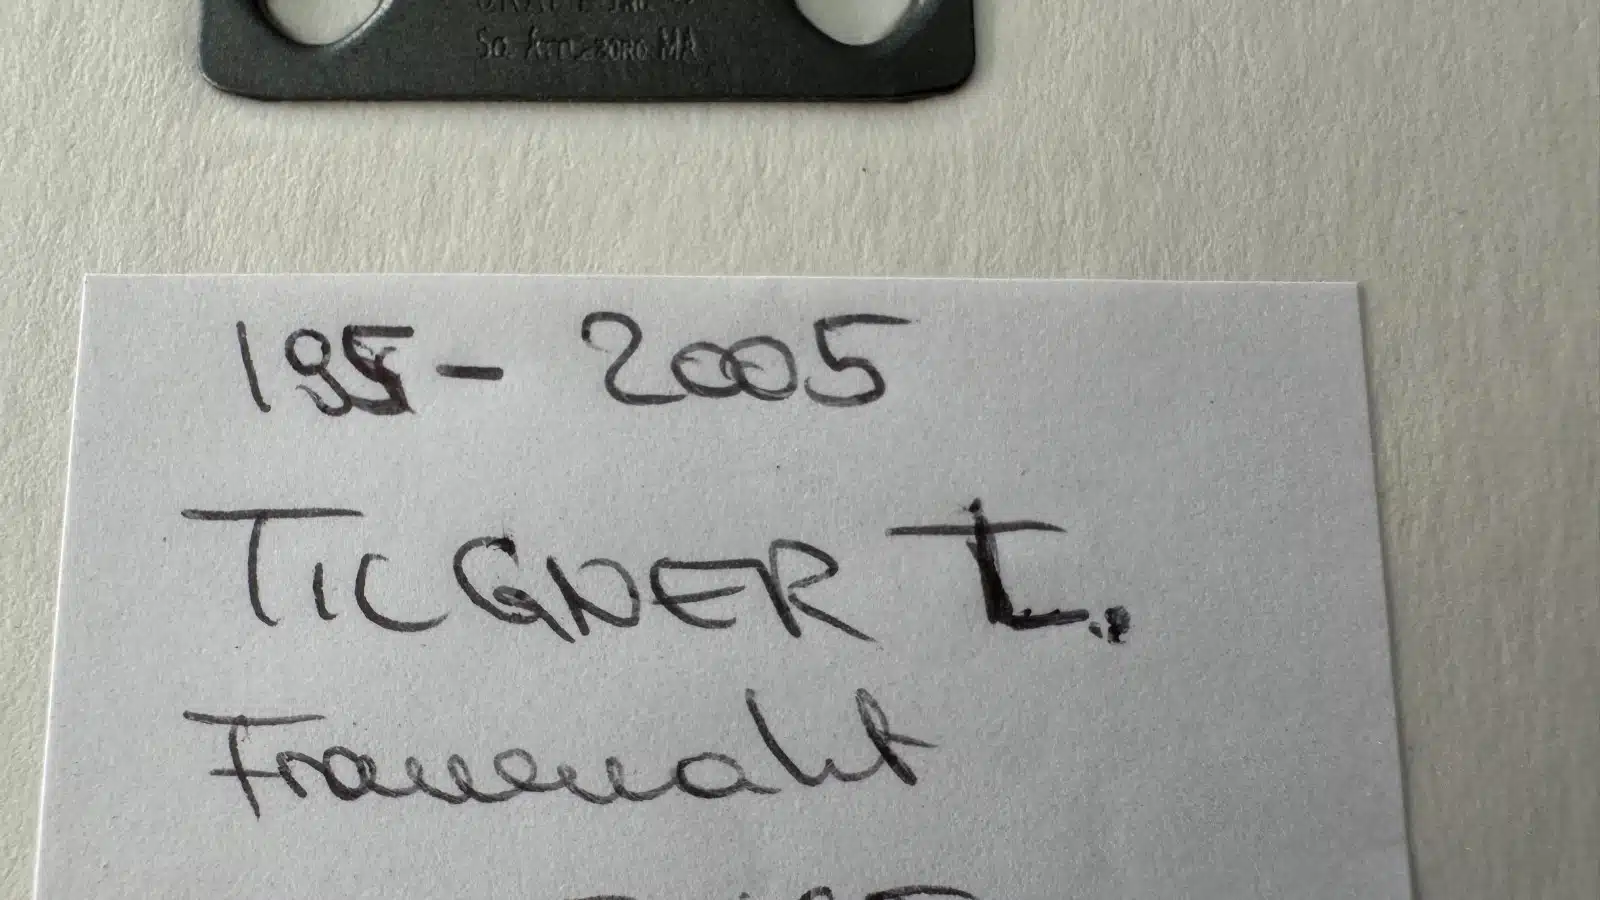 So. ATTLEBORO MA
195- 2005
TICGNER I.
Frauenakt